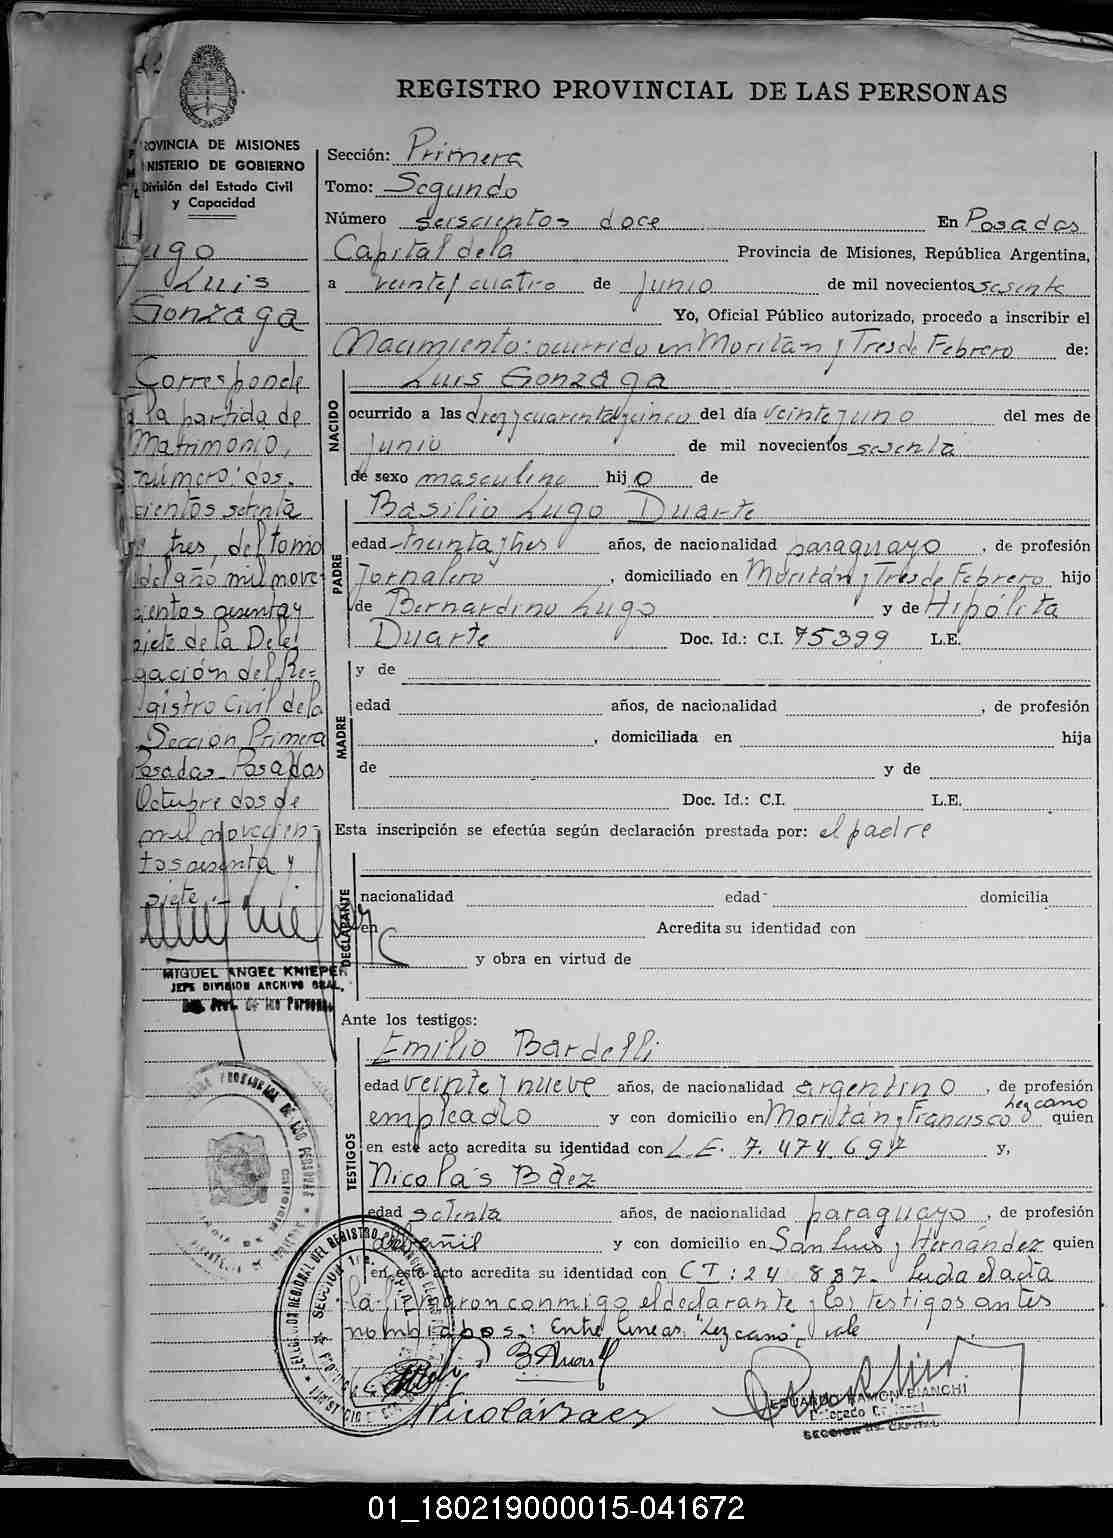 REGISTRO PROVINCIAL DE LAS PERSONAS
PROVINCIA DE MISIONES
MINISTERIO DE GOBIERNO
División del Estado Civil
y Capacidad
Lugo
Luis
Gonzaga
Corresponde
a la partida de
Matrimonio,
número: dos-
cientos setenta
y tres, del tomo
del año mil nove-
cientos sesenta y
siete de la Dele-
gación del Re-
gistro Civil de la
Sección Primera
Posadas. Posadas
Octubre dos de
mil novecien-
tos sesenta y
siete.-
MIGUEL ANGEL KNIEPER
JEFE DIVISION ARCHIVO GRAL.
Reg. Prov. de las Personas
Sección: Primera
Tomo: Segundo
Número seiscientos doce En Posadas
Capital de la Provincia de Misiones, República Argentina,
a veinte y cuatro de junio de mil novecientos sesenta
Yo, Oficial Público autorizado, procedo a inscribir el
Nacimiento: ocurrido en Moritán y Tres de Febrero de:
NACIDO
Luis Gonzaga
ocurrido a las diez y cuarenta y cinco del día veintejuno del mes de
junio de mil novecientos sesenta
de sexo masculino hijo de
PADRE
Basilio Lugo Duarte
edad treinta y tres años, de nacionalidad paraguayo, de profesión
Jornalero, domiciliado en Moritán y Tres de Febrero hijo
de Bernardino Lugo y de Hipólita
Duarte Doc. Id.: C.I. 75399 L.E.
MADRE
y de
edad años, de nacionalidad , de profesión
, domiciliada en hija
de y de
Doc. Id.: C.I. L.E.
Esta inscripción se efectúa según declaración prestada por: el padre
DECLARANTE
nacionalidad edad domicilia
en Acredita su identidad con
y obra en virtud de
Ante los testigos:
TESTIGOS
Emilio Bardelli
edad veinte y nueve años, de nacionalidad argentino, de profesión
Lezcano
empleado y con domicilio en Moritán y Francisco quien
en este acto acredita su identidad con L.E. 7.474.697 y,
Nicolás Báez
edad setenta años, de nacionalidad paraguayo, de profesión
albañil y con domicilio en San Luis y Hernández quien
en este acto acredita su identidad con CI: 24 887- Leída el acta
la firmaron conmigo el declarante y los testigos antes
nombrados.: Entre líneas: "Lezcano", vale
Nicolás Baez
EDUARDO RAMON BIANCHI
SECCION 1a. CAPITAL
DELEGACION REGIONAL DEL REGISTRO
SECCION 1ra. CAPITAL
01_180219000015-041672